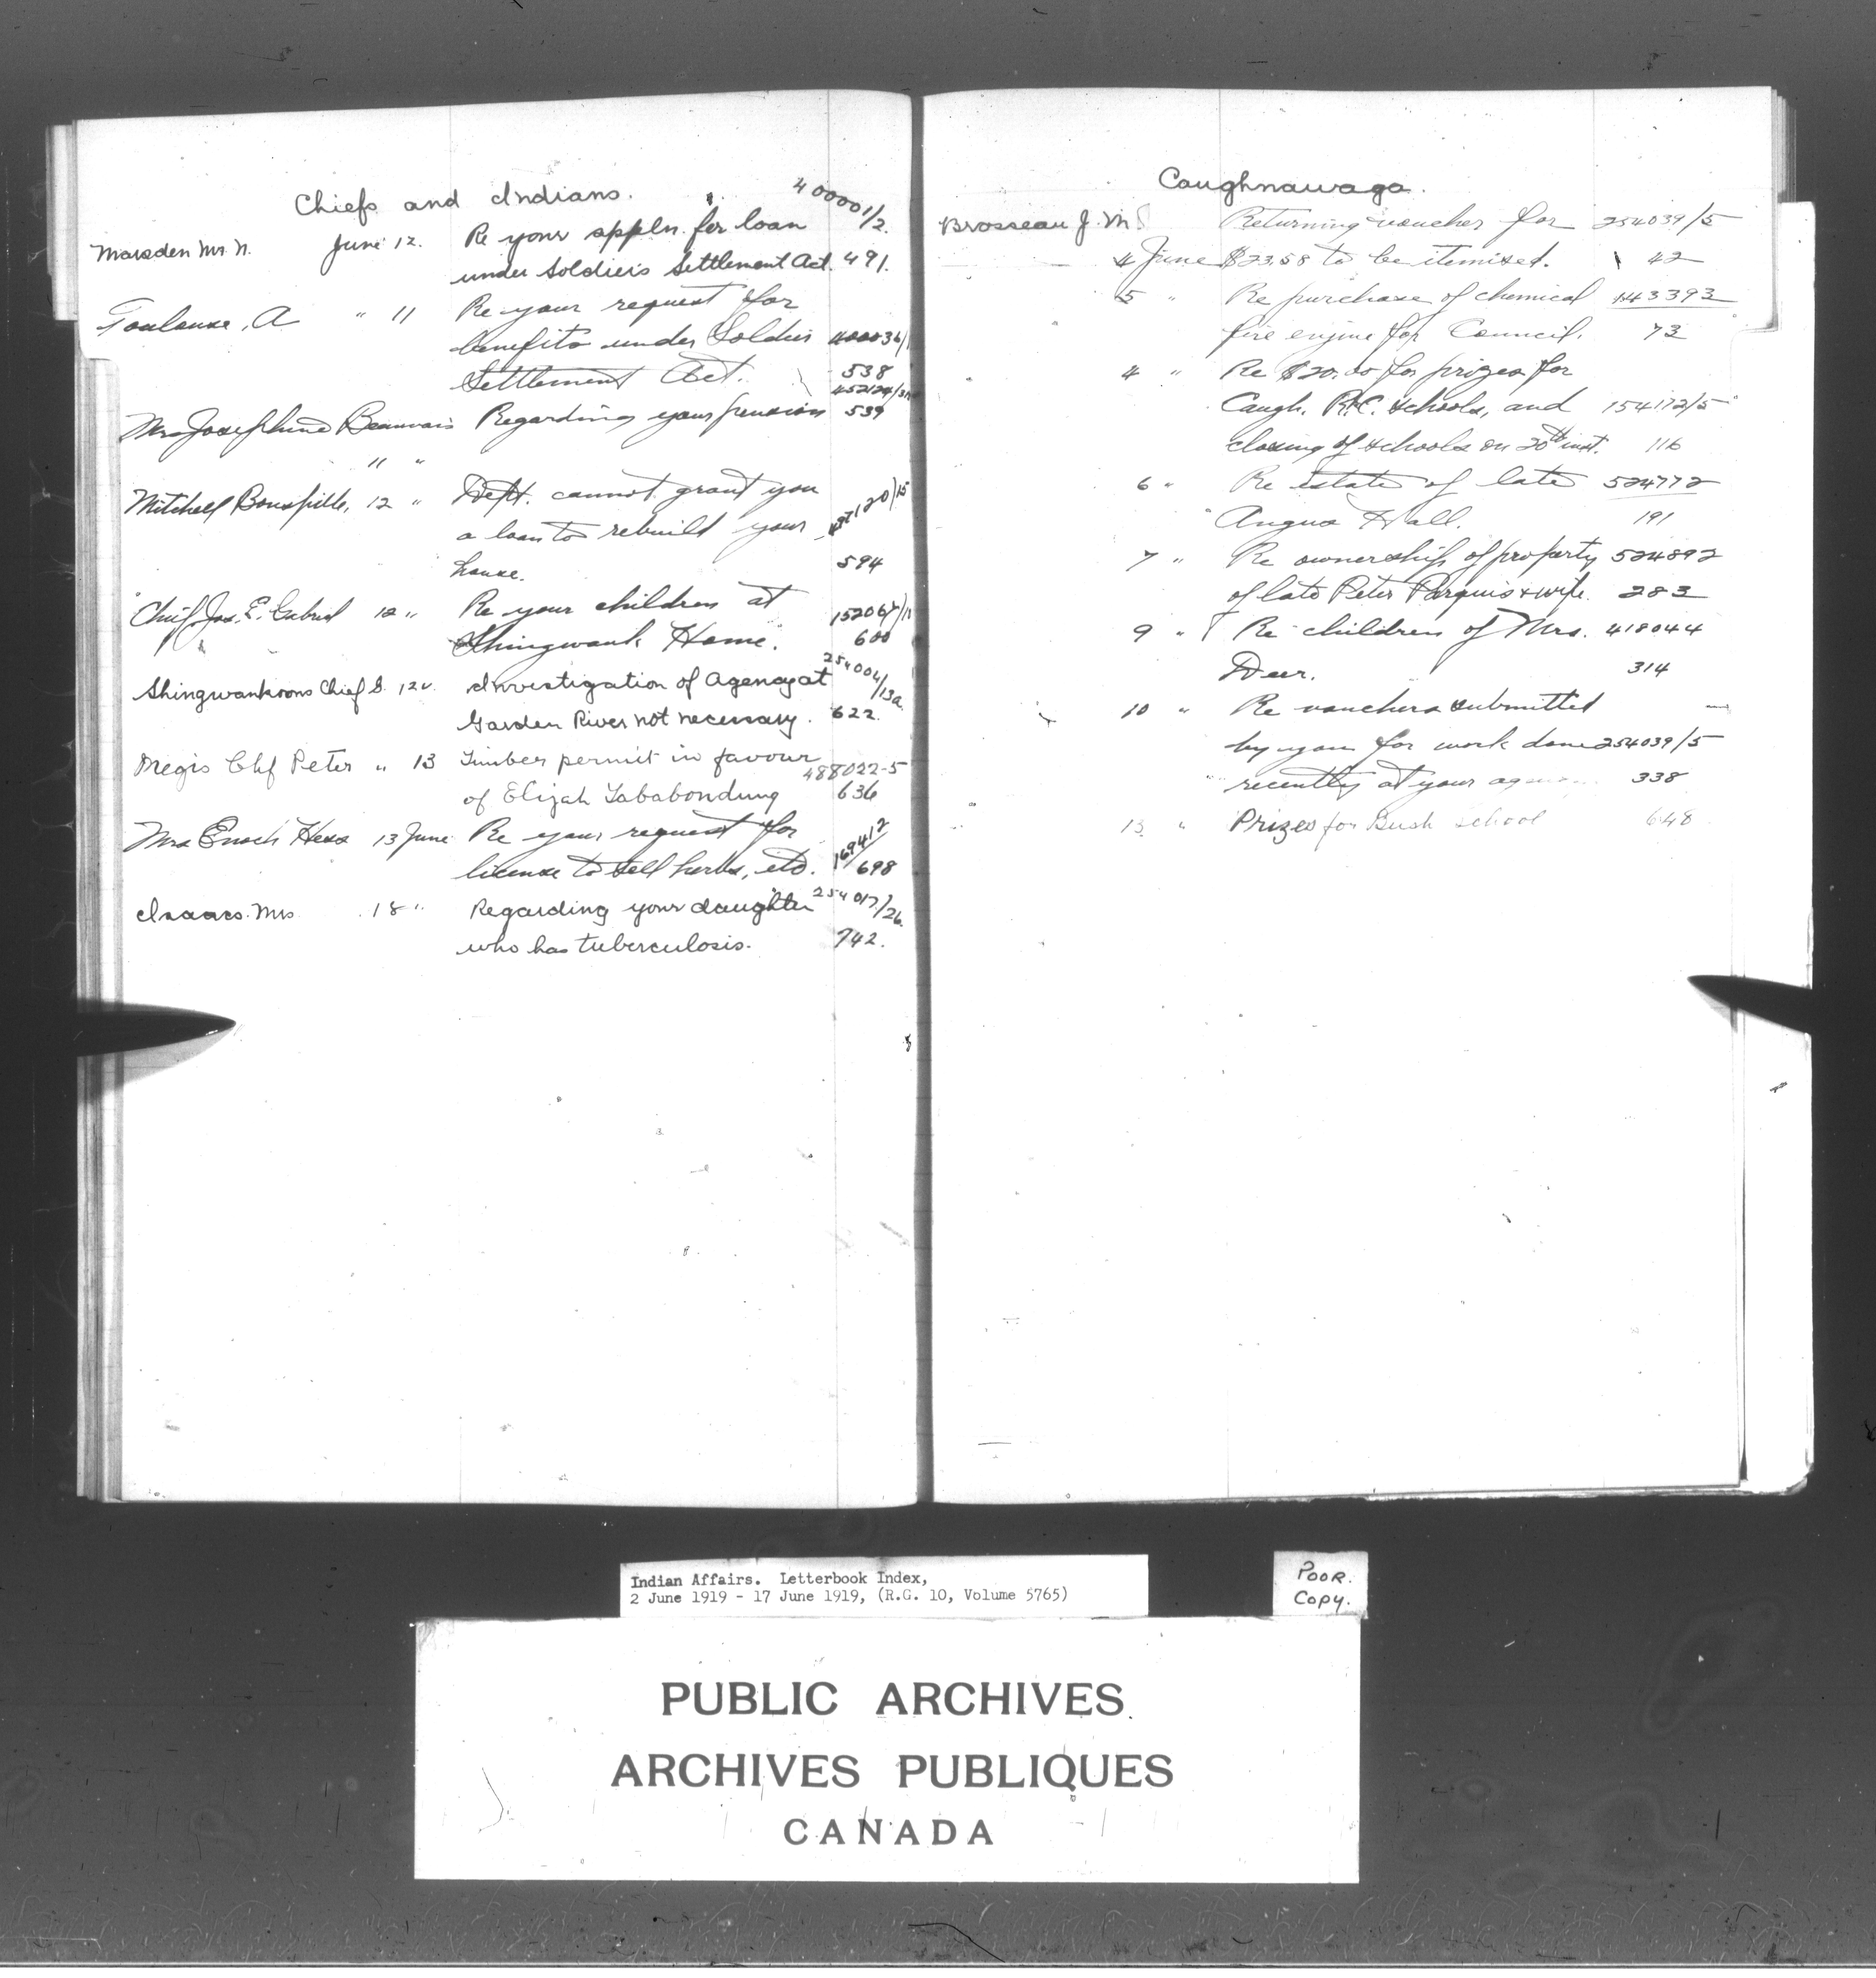 Chiefs and Indians.
Marsden Mr. N. June 12. Re your appln. for loan 400001/2.
under Soldiers Settlement Act. 491.
Toulouse, A " 11 Re your request for
benefits under Soldier
Settlement Act. 538
Mrs Josephine Beauvais Regarding your pension 539
11 "
Mitchell Bonspille, 12 " Dept. cannot grant you
a loan to rebuild your
house. 594
Chief Jos. E. Gabriel 12 " Re your children at
Shingwauk Home. 600
Shingwaukoons Chief G. 12 " Investigation of Agency at 254004/13a.
Garden River not necessary. 622.
Megis Chf Peter " 13 Timber permit in favour 488022-5
of Elijah Tababondung 636
Mrs Enoch Hess 13 June Re your request for 169412/
license to sell herbs, etc. 698
Isaacs. Mrs 18 " Regarding your daughter 254017/26.
who has tuberculosis. 742.
Caughnawaga.
Brosseau J. M. Returning voucher for 254039/5
4 June $23.58 to be itemized. 42
5 " Re purchase of chemical 143393
fire engine for Council. 73
4 " Re $20.00 for prizes for
Caugh. R.C. schools, and 154172/5
closing of schools on 20th inst. 116
6 " Re estate of late 524772
Angus Hall. 191
7 " Re ownership of property 524892
of late Peter Parquis & wife. 283
9 " Re children of Mrs. 418044
Deer. 314
10 " Re vouchers submitted
by you for work done 254039/5
recently at your agency 338
13 " Prizes for Bush School 648
Indian Affairs. Letterbook Index,
2 June 1919 - 17 June 1919, (R.G. 10, Volume 5765)
POOR.
COPY.
PUBLIC ARCHIVES
ARCHIVES PUBLIQUES
CANADA